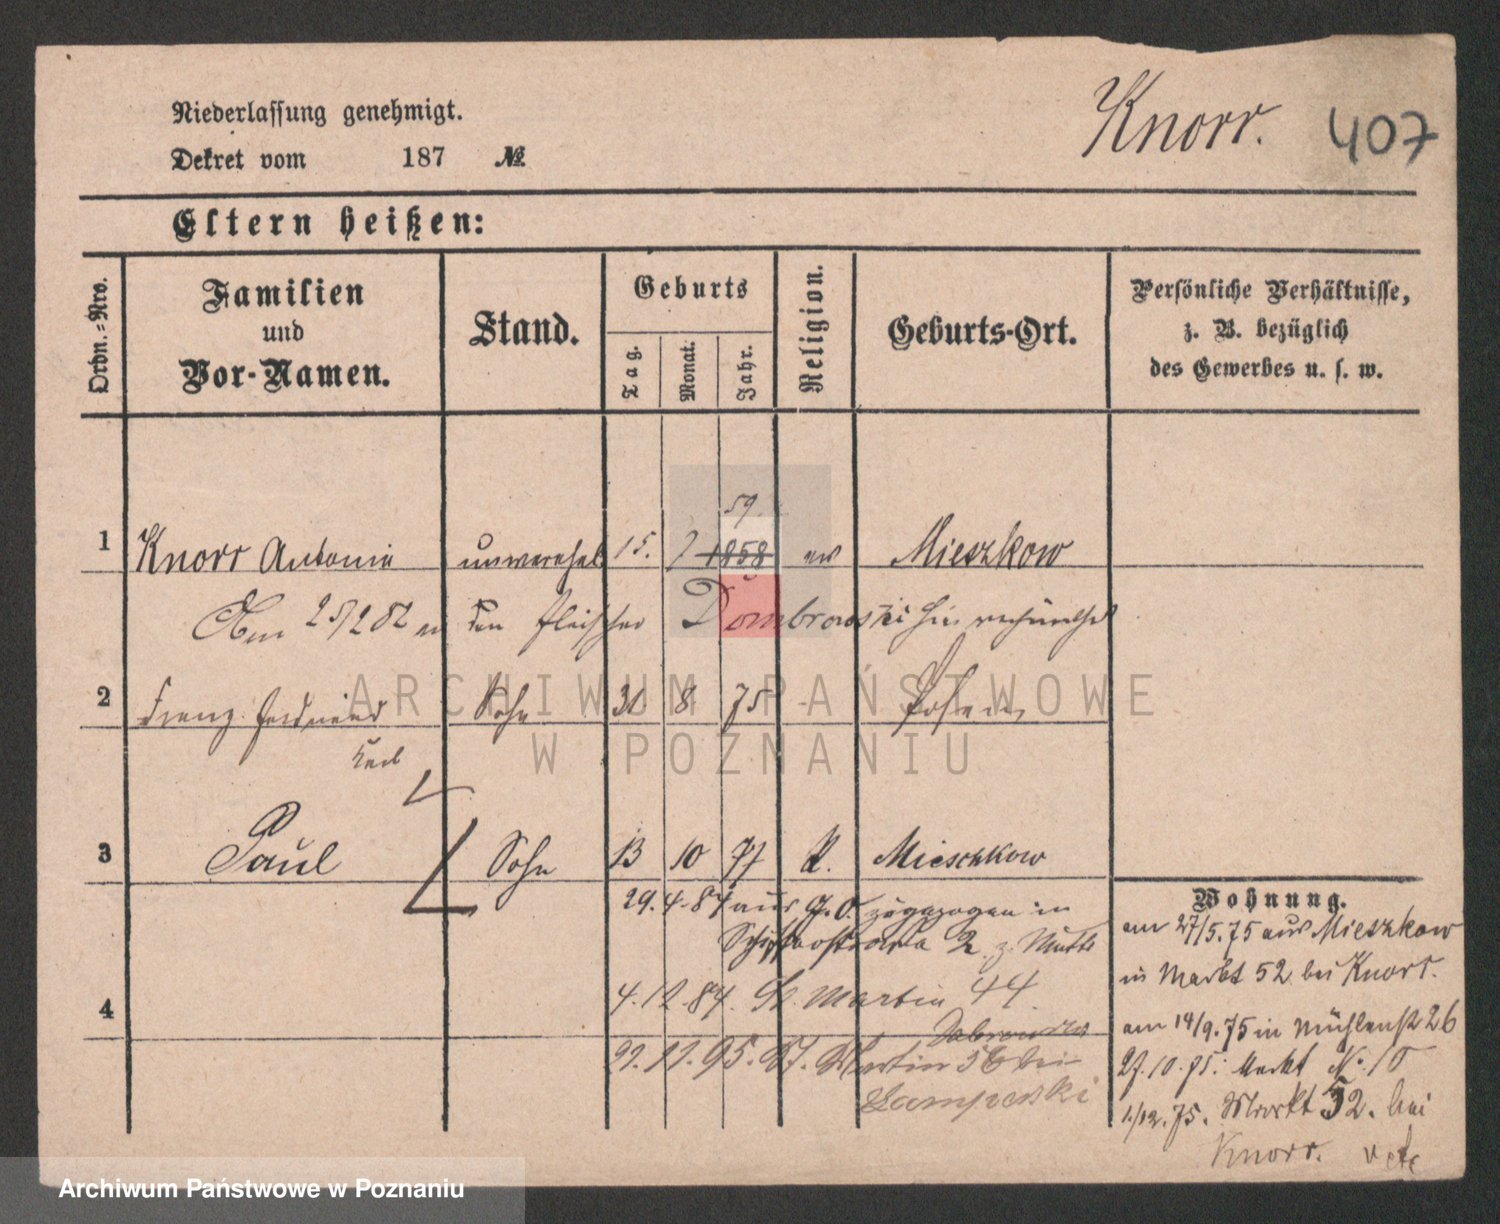 Niederlassung genehmigt.
Dekret vom 187 №
Knorr. 407
Eltern heißen:
Ordn.-Nro.
Familien
und
Vor-Namen.
Stand.
Geburts
Tag.
Monat.
Jahr.
Religion.
Geburts-Ort.
Persönliche Verhältnisse,
z. B. bezüglich
des Gewerbes u. s. w.
59
1 Knorr Antonie unverehel 15. 7 1858 ev Mieszkow
den Fleischer Dombrowski
2 Franz Ferdinand Sohn 31 8 75 Posen
Karl
3 Paul Sohn 13 10 77 K. Mieschkow
29.4.84 aus zugezogen in
2 z. Mutter
4
4.12.84. St. Martin 44
11.95. St. Martin 56 bei
Wohnung.
am 27/5.75 aus Mieszkow
in Markt 52 bei Knorr.
am 14/9.75 in Mühlenstr 26
27.10.75. Markt N. 10
1/12.75. Markt 52. bei
Knorr.
ARCHIWUM PAŃSTWOWE
W POZNANIU
Archiwum Państwowe w Poznaniu